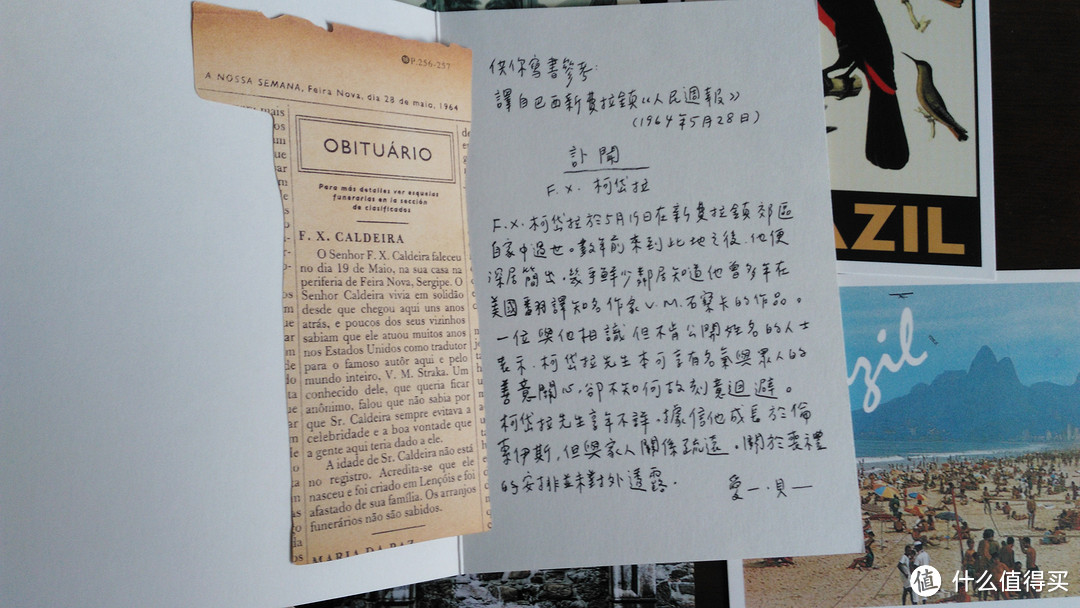 P.256-257
A NOSSA SEMANA, Feira Nova, dia 28 de maio, 1964
OBITUÁRIO
Para más detalles ver esquelas
funerarias en la sección
de clasificados
F. X. CALDEIRA
O Senhor F. X. Caldeira faleceu
no dia 19 de Maio, na sua casa na
periferia de Feira Nova, Sergipe. O
Senhor Caldeira vivia em solidão
desde que chegou aqui uns anos
atrás, e poucos dos seus vizinhos
sabiam que ele atuou muitos anos
nos Estados Unidos como tradutor
para o famoso autôr aqui e pelo
mundo inteiro, V. M. Straka. Um
conhecido dele, que queria ficar
anônimo, falou que não sabia por
que Sr. Caldeira sempre evitava a
celebridade e a boa vontade que
a gente aqui teria dado a ele.
A idade de Sr. Caldeira não está
no registro. Acredita-se que ele
nasceu e foi criado em Lençóis e foi
afastado de sua família. Os arranjos
funerários não são sabidos.
MARIA DA PAZ
供你寫書參考:
譯自巴西新費拉鎮《人民週報》
(1964年5月28日)
訃聞
F. X. 柯岱拉
F. X. 柯岱拉於5月19日在新費拉鎮郊區
自家中過世。數年前來到此地之後,他便
深居簡出,幾乎鮮少鄰居知道他曾多年在
美國翻譯知名作家V. M. 石察卡的作品。
一位與他相識但不肯公開姓名的人士
表示,柯岱拉先生本可享有名氣與眾人的
善意關心,卻不知何故刻意迴避。
柯岱拉先生享年不詳。據信他成長於倫
東伊斯,但與家人關係疏遠。關於喪禮
的安排並未對外透露。
愛一·貝一
AZIL
zil
值 什么值得买